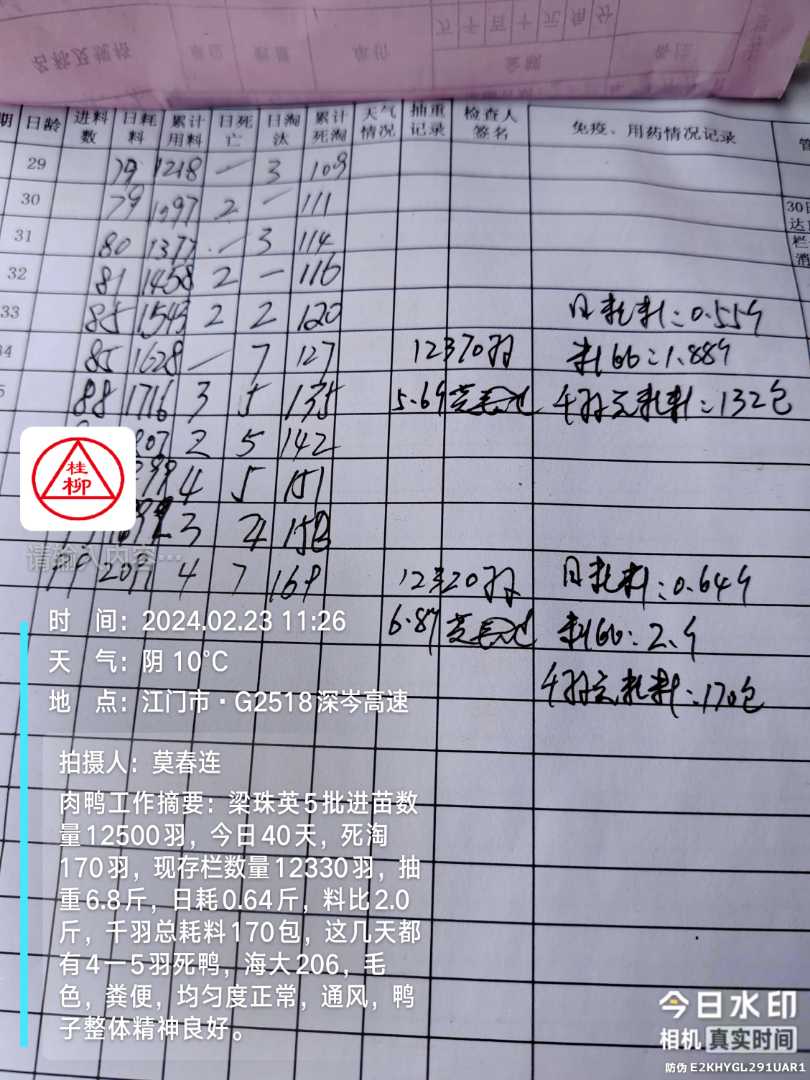 名称及规格 单位 数量 单价 金额 备注
六 千 百 十 元 角 分
期 日龄 进料数 日耗料 累计用料 日死亡 日淘汰 累计死淘 天气情况 抽重记录 检查人签名 免疫、用药情况记录 管
29 79 1218 — 3 109
30 79 1297 2 — 111
31 80 1377 — 3 114
32 81 1458 2 — 116
33 85 1543 2 2 120 日耗料:0.55斤
34 85 1628 — 7 127 12370羽 料比:1.88斤
5 88 1716 3 5 135 5.6斤 莫春连 千羽总耗料:132包
807 2 5 142
4 5 151
3 4 158
2091 4 7 169 12320羽 日耗料:0.64斤
6.8斤 莫春连 料比:2.斤
千羽总耗料:170包
30日
达
栏
消
桂柳
请输入内容…
时 间：2024.02.23 11:26
天 气：阴 10℃
地 点：江门市·G2518深岑高速
拍摄人：莫春连
肉鸭工作摘要：梁珠英5批进苗数
量12500羽，今日40天，死淘
170羽，现存栏数量12330羽，抽
重6.8斤，日耗0.64斤，料比2.0
斤，千羽总耗料170包，这几天都
有4一5羽死鸭，海大206，毛
色，粪便，均匀度正常，通风，鸭
子整体精神良好。
今日水印
相机 真实时间
防伪 E2KHYGL291UAR1